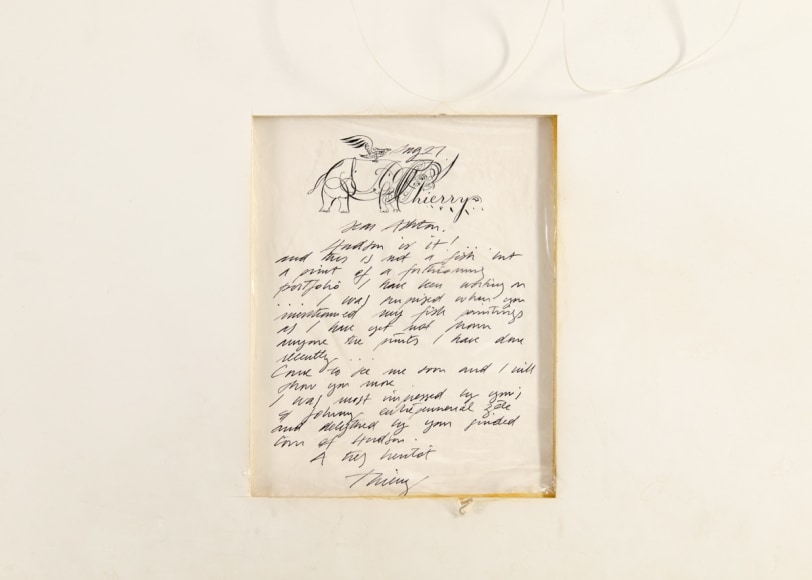 Aug 27
Thierry
Dear Ashton.
Hudson is it! ...
and this is not a fish but
a print of a forthcoming
portfolio I have been working on
.... I was surprised when you
mentionned my fish paintings
as I have yet not shown
anyone the prints I have done
recently ...
Come to see me soon and I will
show you more
I was most impressed by your's
& Johnny entrepreneurial zèle
and delighted by your guided
tour of Hudson.
A tres bientôt
Thierry